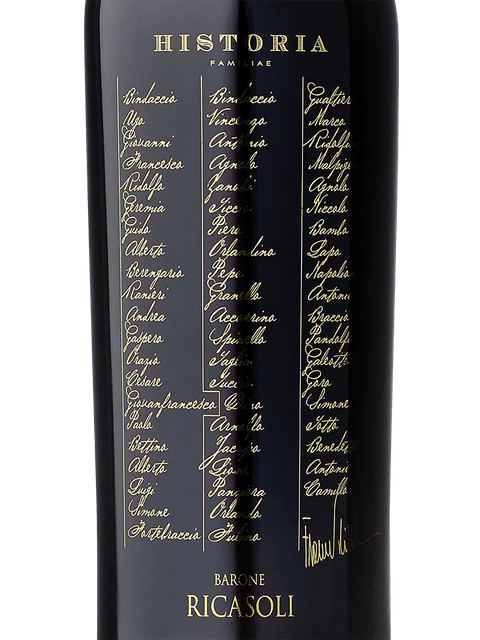 HISTORIA
FAMILIAE
Bindaccio
Ugo
Giovanni
Francesco
Ridolfo
Geremia
Guido
Alberto
Berengario
Ranieri
Andrea
Gaspero
Orazio
Cesare
Giovanfrancesco
Paolo
Bettino
Alberto
Luigi
Simone
Fortebraccio
Bindaccio
Vincenzo
Antonio
Agnolo
Zanobi
Ciccia
Piero
Orlandino
Pepo
Granello
Accerrino
Spinello
Tuccio
Dino
Arnolfo
Jacopo
Lione
Panziera
Orlando
Gualtier
Marco
Ridolfo
Malpigl
Agnolo
Niccolo
Bambo
Lapo
Napolion
Antoni
Braccio
Pandolfo
Galeotto
Goro
Simone
Totto
Benedett
Antoni
Camillo
BARONE
RICASOLI